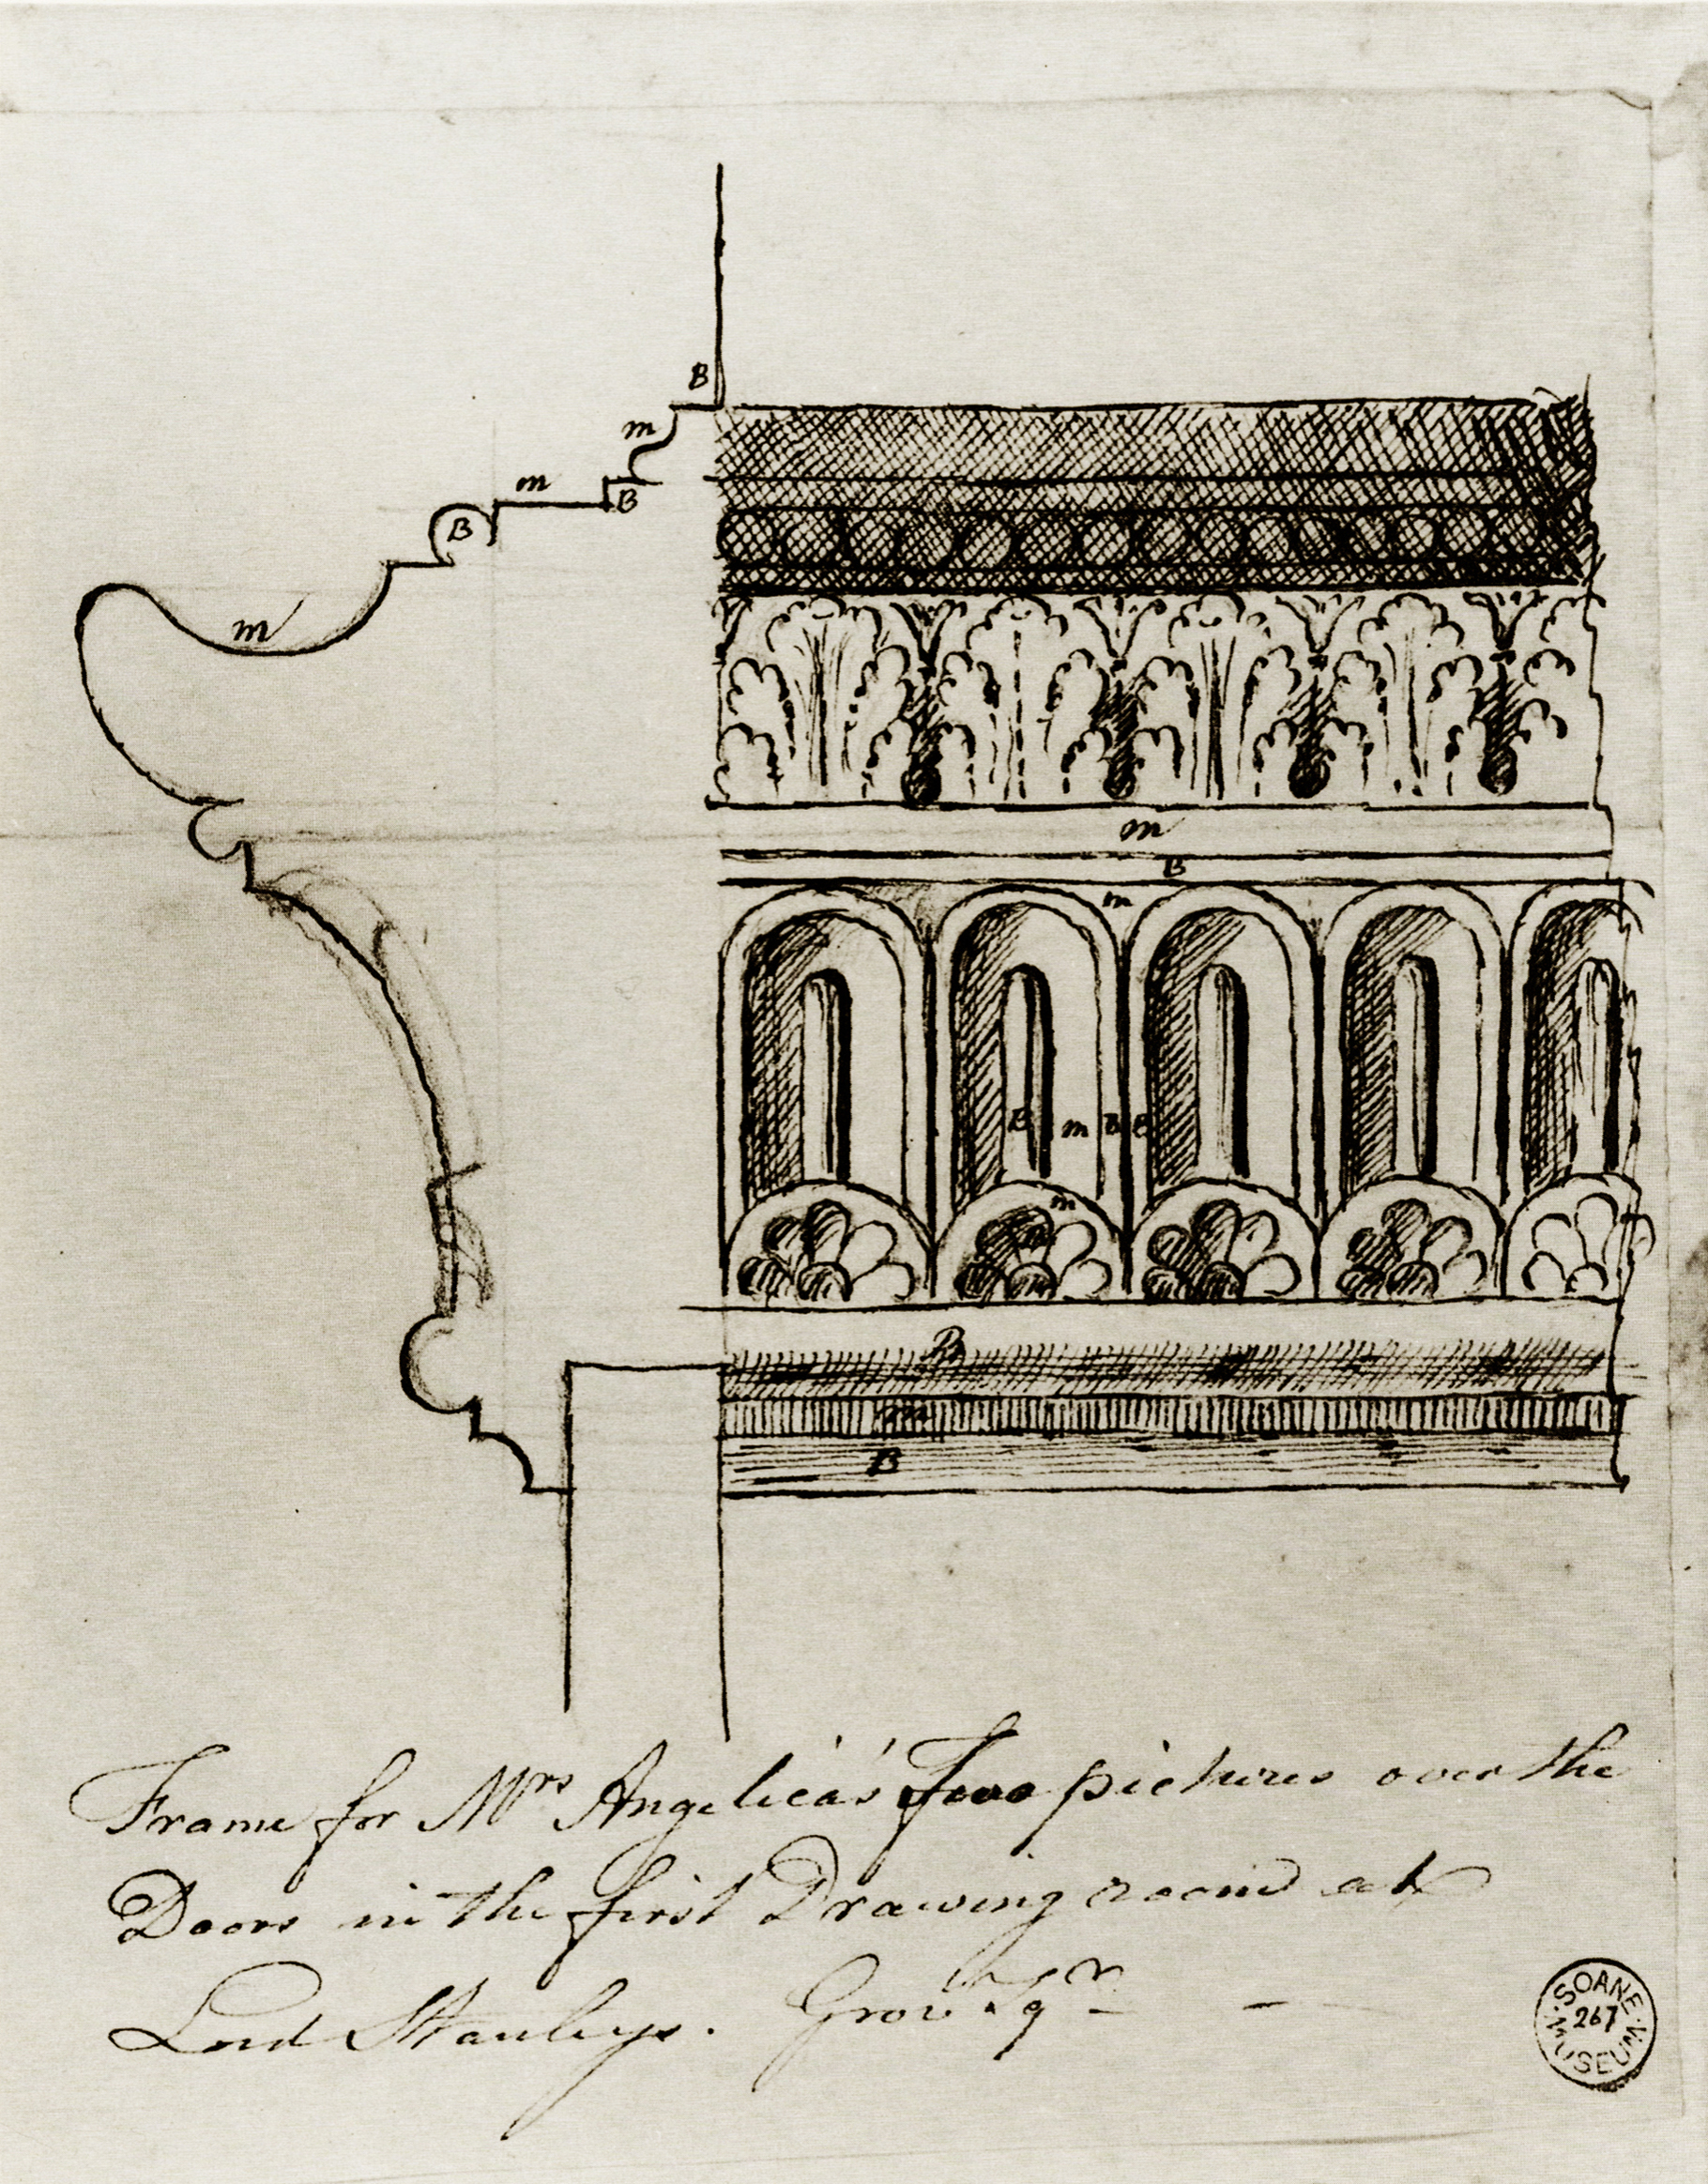 B
m
m
B
B
m
m
B
m
B m B B
m
B
B
Frame for Mrs Angelica's Two pictures over the
Doors in the first Drawing room at
Lord Stanleys. Grov. Sqr
SOANE MUSEUM
267